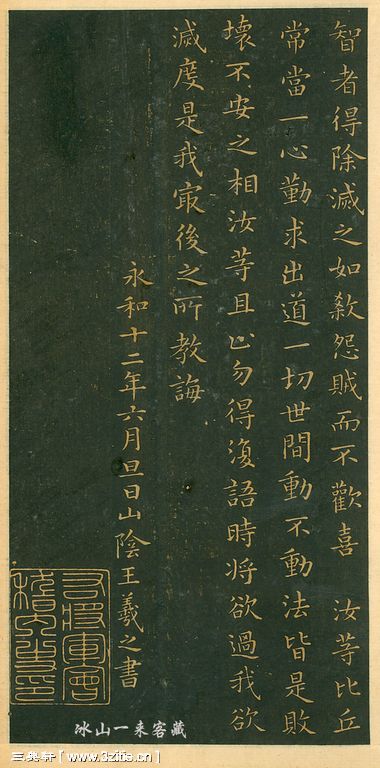 智者得除滅之如煞怨賊而不歡喜 汝等比丘
常當一心勤求出道一切世間動不動法皆是敗
壞不安之相汝等且止勿得復語時将欲過我欲
滅度是我冣後之所教誨
永和十二年六月旦日山陰王羲之書
右将軍會
稽內史印
冰山一来客藏